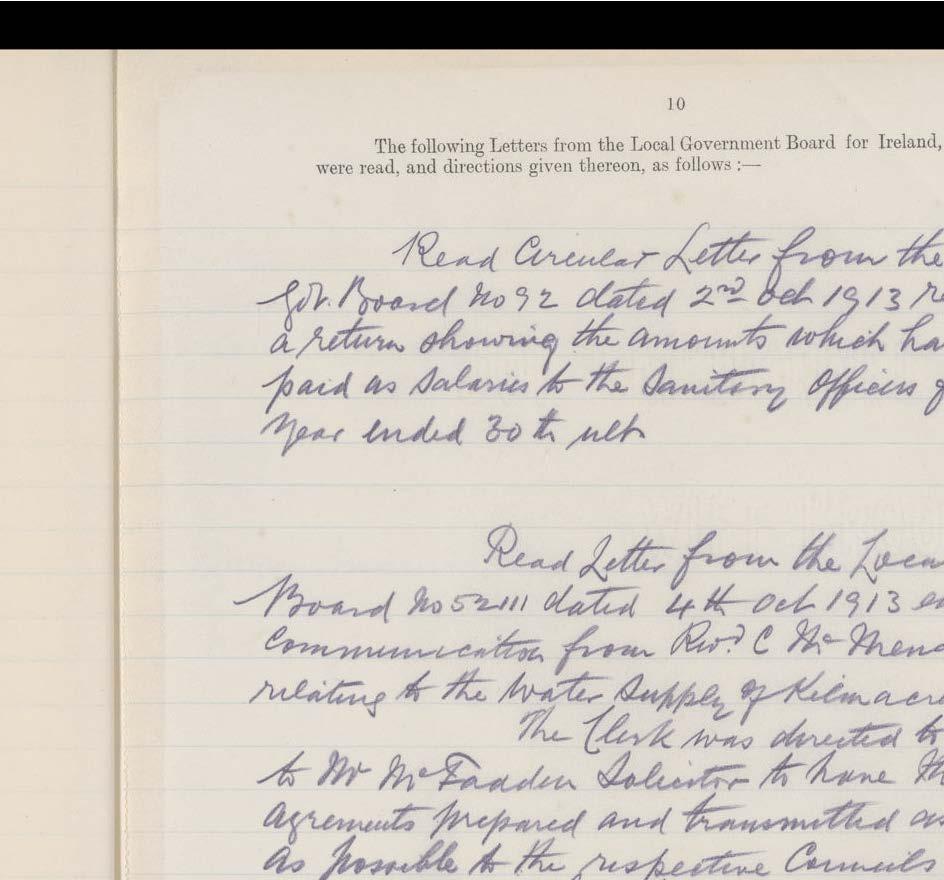 10
The following Letters from the Local Government Board for Ireland,
were read, and directions given thereon, as follows :—
Read Circular Letter from the
Gov. Board No 92 dated 2nd Oct 1913 re
a return showing the amounts which ha
paid as Salaries to the Sanitary Officers
Year ended 30th ult
Read Letter from the Loca
Board No 52111 dated 4th Oct 1913 en
Communication from Revd. C Mc Mena
relating to the Water Supply of Kilmacre
The Clerk was directed to
to Mr McFadden Solicitor to have th
agrements prepared and transmitted as
as possible to the respective Councils